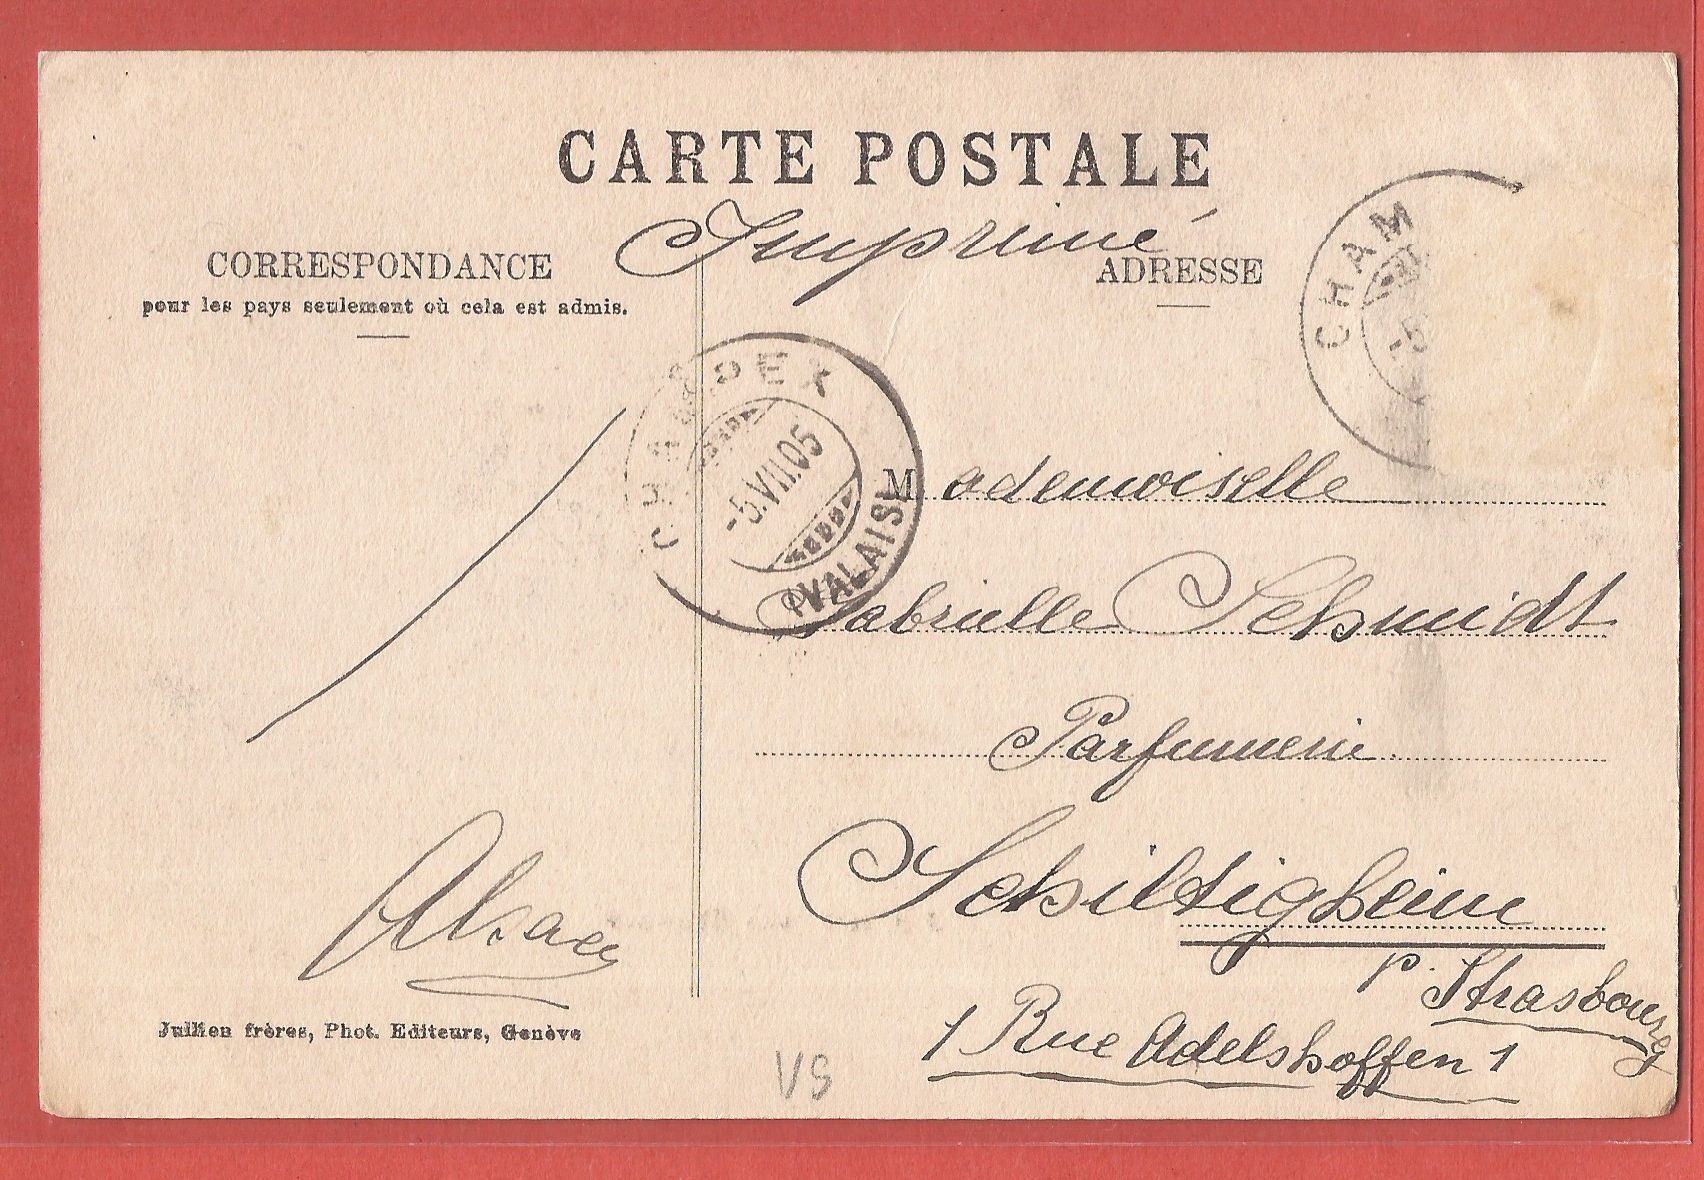 CARTE POSTALE
Imprimé
CORRESPONDANCE
pour les pays seulement où cela est admis.
ADRESSE
CHAM
-5
CHAMPEX
-5.VII.05
(VALAIS)
Mademoiselle
Gabrielle Schmidt
Parfumerie
Schiltigheim
p. Strasbourg
1 Rue Adelshoffen 1
Alsace
Jullien frères, Phot. Editeurs, Genève
VS